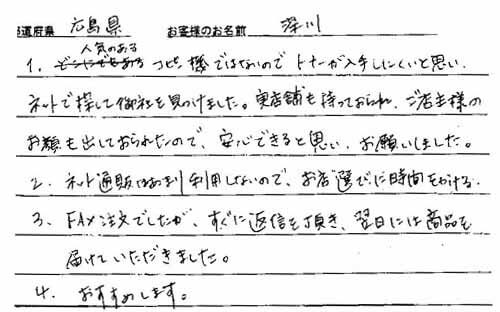 道府県 広島県 お客様のお名前 深川
人気のある
1. どこにでもある コピー機ではないので トナーが入手しにくいと思い、
ネットで探して御社を見つけました。実店舗も持っておられ、ご店主様の
お顔も出しておられたので、安心できると思い、お願いしました。
2. ネット通販はあまり利用しないので、お店選びに時間をかける。
3. FAX注文でしたが、すぐに返信を頂き、翌日には商品を
届けていただきました。
4. おすすめします。